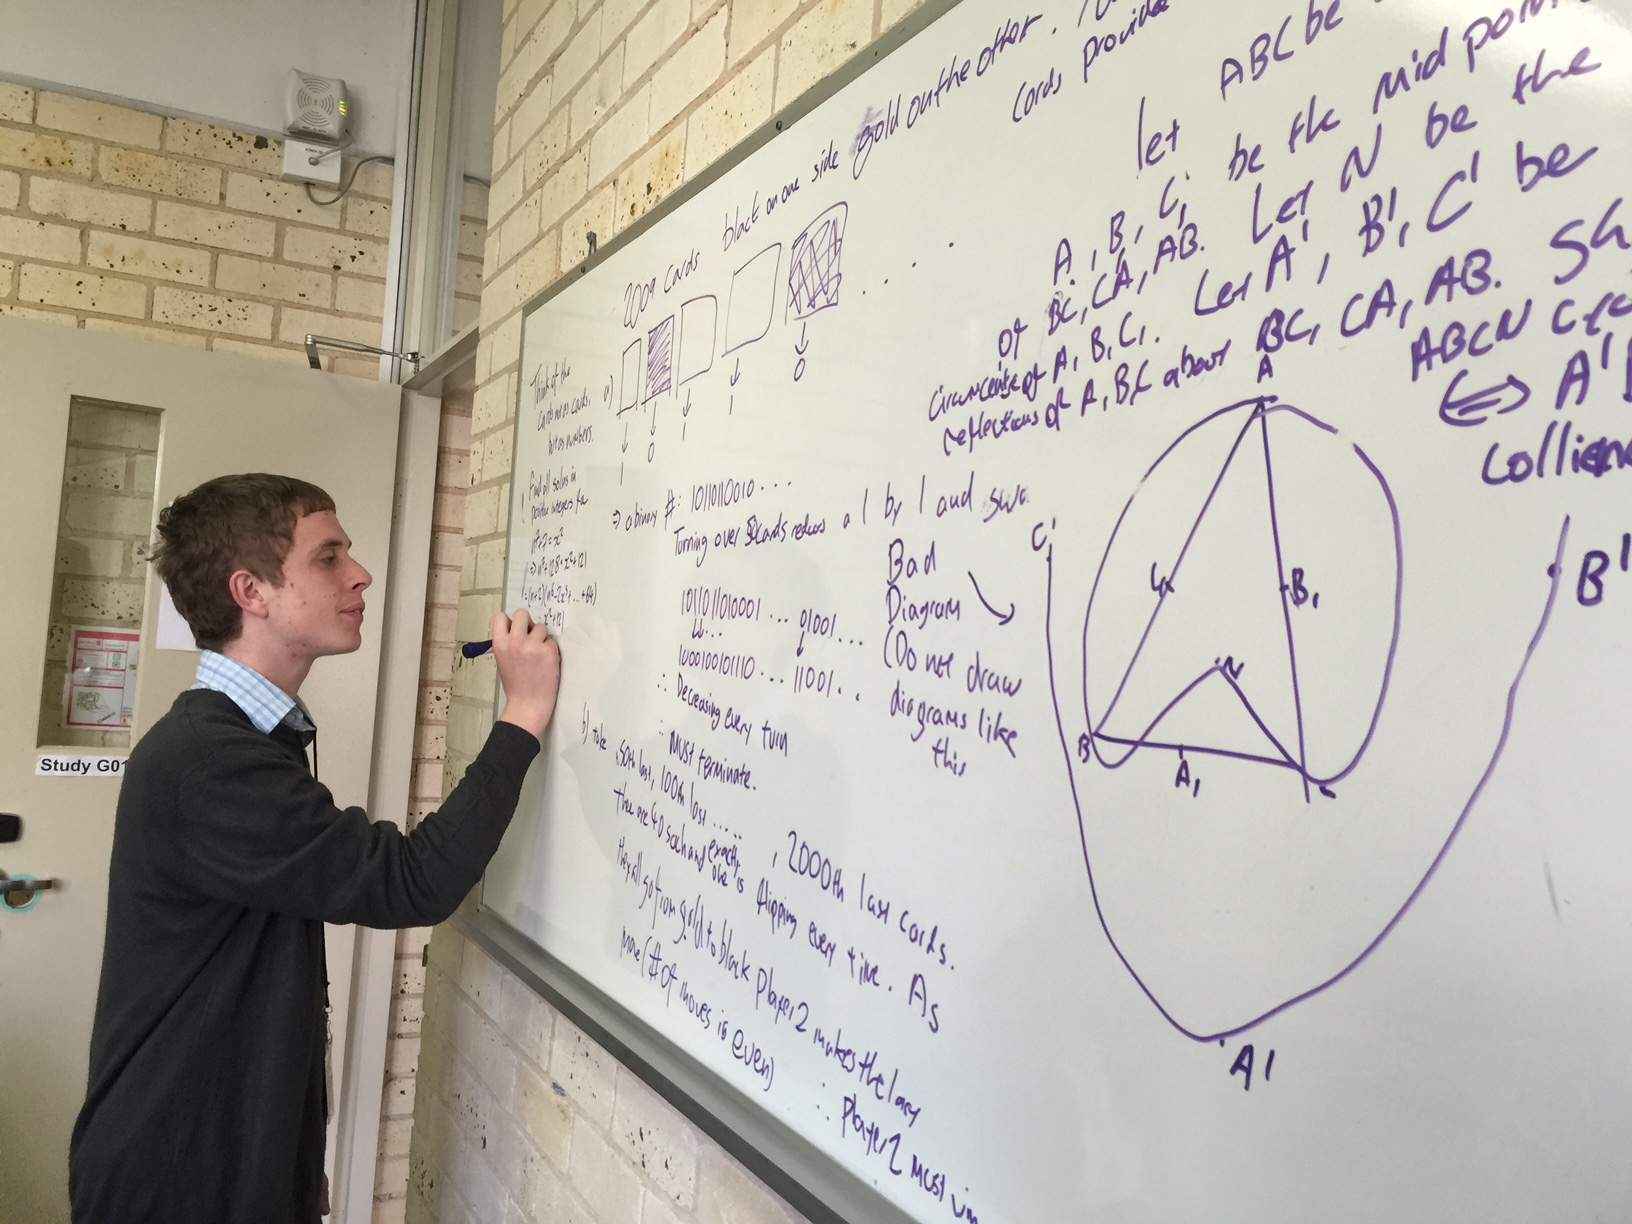 2009 cards black on one side gold on the other.
cards provide
let ABC be
A, B, C, be the mid point
of BC, CA, AB. Let N be the
circumcentre of A, B, C,. Let A', B', C' be
reflections of A, B, C about BC, CA, AB. Sh
ABCN cyc
⟺ A'B
collienc
Think of the
cards not as cards,
but as numbers.
a)
1 0 1 1 0
⇒ a binary #: 1011011010...
Turning over 50 cards reduces a 1 by 1 and swa
1011011010001 ... 01001...
100010010110 ... 11001..
∴ Decreasing every turn
∴ Must terminate.
b) take 50th last, 100th last ....., 2000th last cards.
There are 40 such and exactly one is flipping every time. As
they all go from gold to black player 2 makes the last
move (# of moves is even)
∴ player 2 must win
Find all solns in
positive integers for
n⁷+7=x²
⇒ n⁷+128=x²+121
=x²+121
Bad
Diagram
(Do not draw
diagrams like
this
A
C'
B'
C₁
B₁
N
B
A₁
C
A'
Study G01